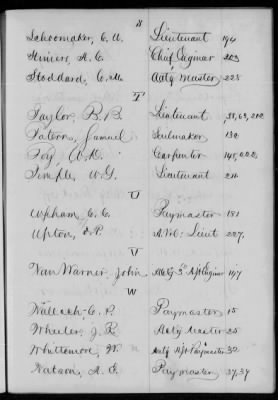 S
Schoonmaker, C. M. Lieutenant 194
Stimers, A. C. Chief Engineer 203
Stoddard, E. M. Actg Master 228
T
Taylor, B. B. Lieutenant 38, 63, 212
Tatem, Samuel Sailmaker 130
Fay, W. D. Carpenter 148, 222
Temple, W. G. Lieutenant 211
U
Upham, C. C. Paymaster 181
Upton, F. P. A. Vol: Lieut 227,
V
Van Warner, John Actg 3d A/s Engineer 197
W
Wallach, C. P. Paymaster 15
Wheeler, J. R. Actg Master 25
Whittemore, W. Actg A/s Paymaster 32
Watson, A. E. Paymaster 27, 37